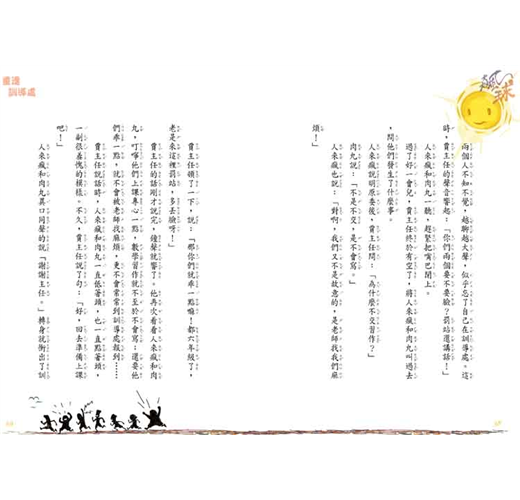 兩個人不知不覺，越聊越大聲，似乎忘了自己在訓導處。這
時，賈主任的聲音響起：「你們兩個要不要臉？罰站還講話！」
人來瘋和肉丸一聽，趕緊把嘴巴閉上。
過了好一會兒，賈主任終於有空了，將人來瘋和肉丸叫過去
，問他們發生了什麼事。
人來瘋說明原委後，賈主任問：「為什麼不交習作？」
肉丸說：「不是不交，是不會寫。」
人來瘋也說：「對啊，我們又不是故意的，是老師找我們麻
煩！」
賈主任頓了一下，說：「那你們就乖一點嘛！都六年級了，
老是來這裡罰站，多丟臉呀！」
賈主任的話剛才說完，鐘聲就響了。他再次看看人來瘋和肉
丸，叮嚀他們上課專心一點，數學習作就不至於不會寫；還要他
們乖一點，就不會被老師找麻煩，更不會常常到訓導處報到……
賈主任說話時，人來瘋和肉丸一直低著頭，也一直點著頭，
一副很羞愧的模樣。不久，賈主任說了句：「好，回去準備上課
吧！」
人來瘋和肉丸異口同聲的說「謝謝主任。」轉身就衝出了訓
訓導處
球